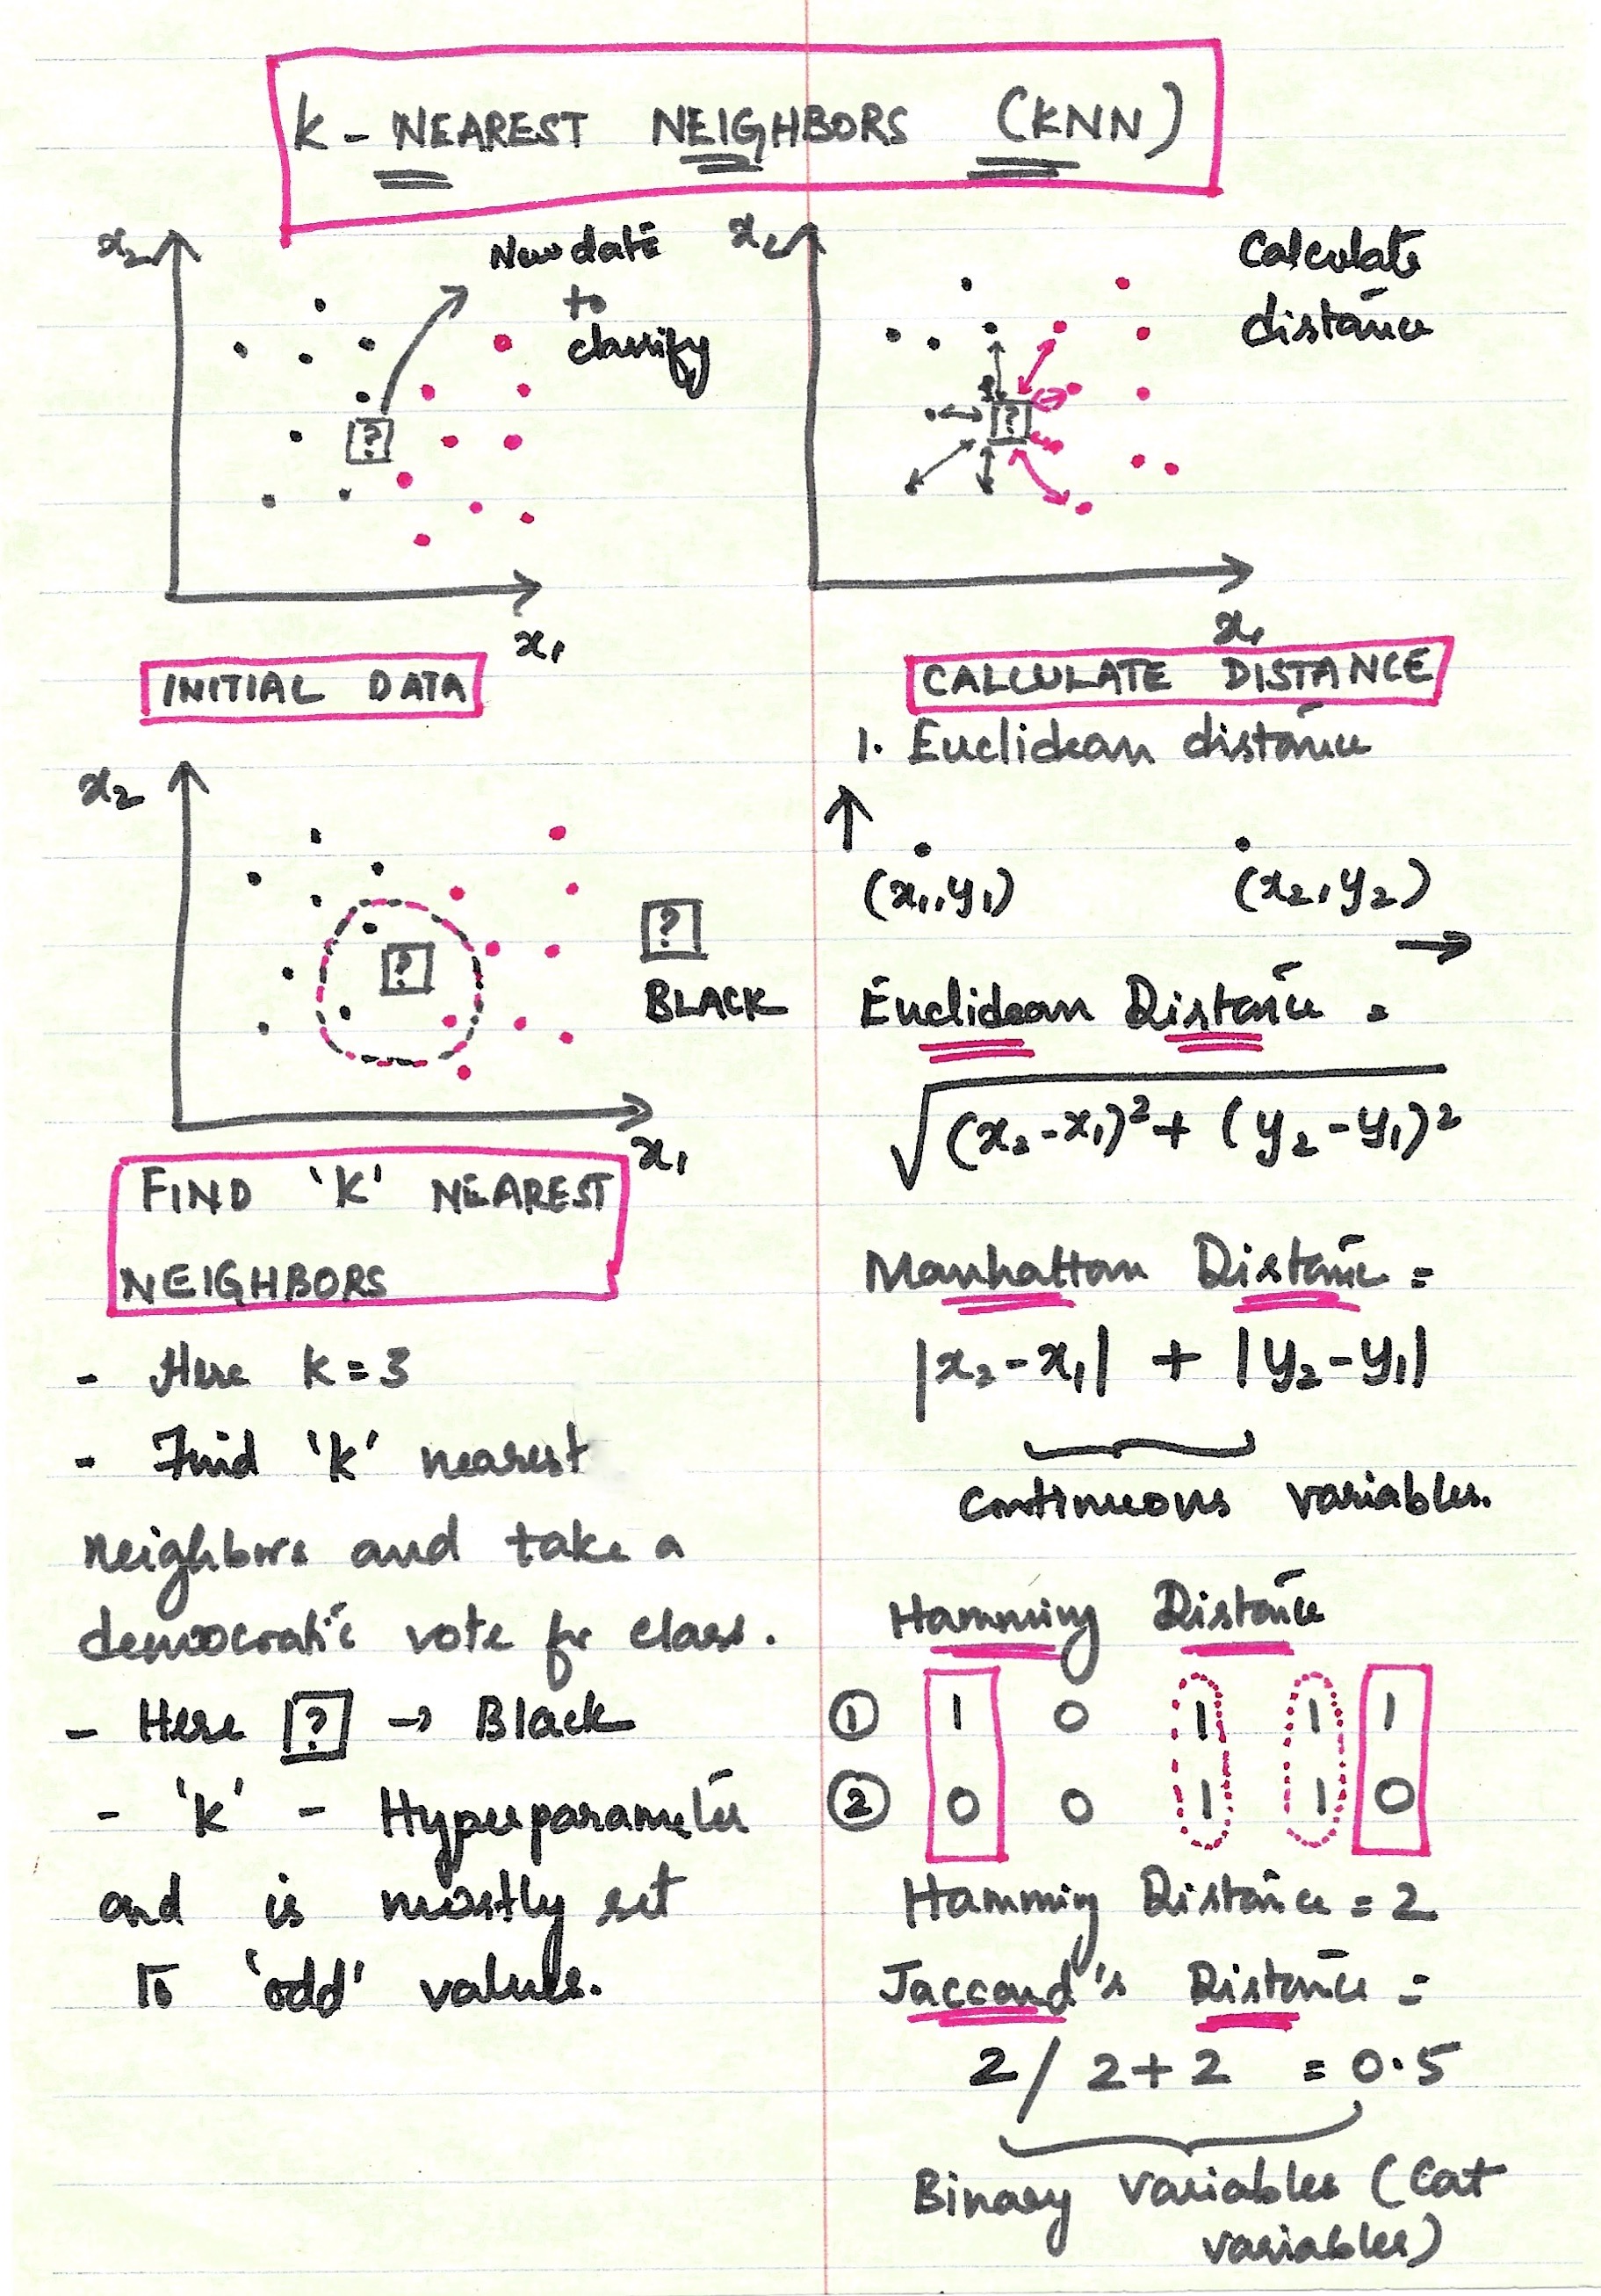 K - NEAREST NEIGHBORS (KNN)
x₂
New date
to
classify
?
x₁
INITIAL DATA
x₂
Calculate
distance
?
x₁
CALCULATE DISTANCE
x₂
?
?
BLACK
x₁
FIND 'K' NEAREST
NEIGHBORS
- Here K = 3
- Find 'K' nearest
neighbors and take a
democratic vote for class.
- Here ? → Black
- 'K' - Hyperparameter
and is mostly set
to 'odd' values.
1. Euclidean distance
(x₁, y₁) (x₂, y₂)
Euclidean Distance =
√(x₂ - x₁)² + (y₂ - y₁)²
Manhattan Distance =
|x₂ - x₁| + |y₂ - y₁|
Continuous variables.
Hamming Distance
① 1 0 1 1 1
② 0 0 1 1 0
Hamming Distance = 2
Jaccard's Distance =
2 / 2 + 2 = 0.5
Binary variables (Cat
variables)